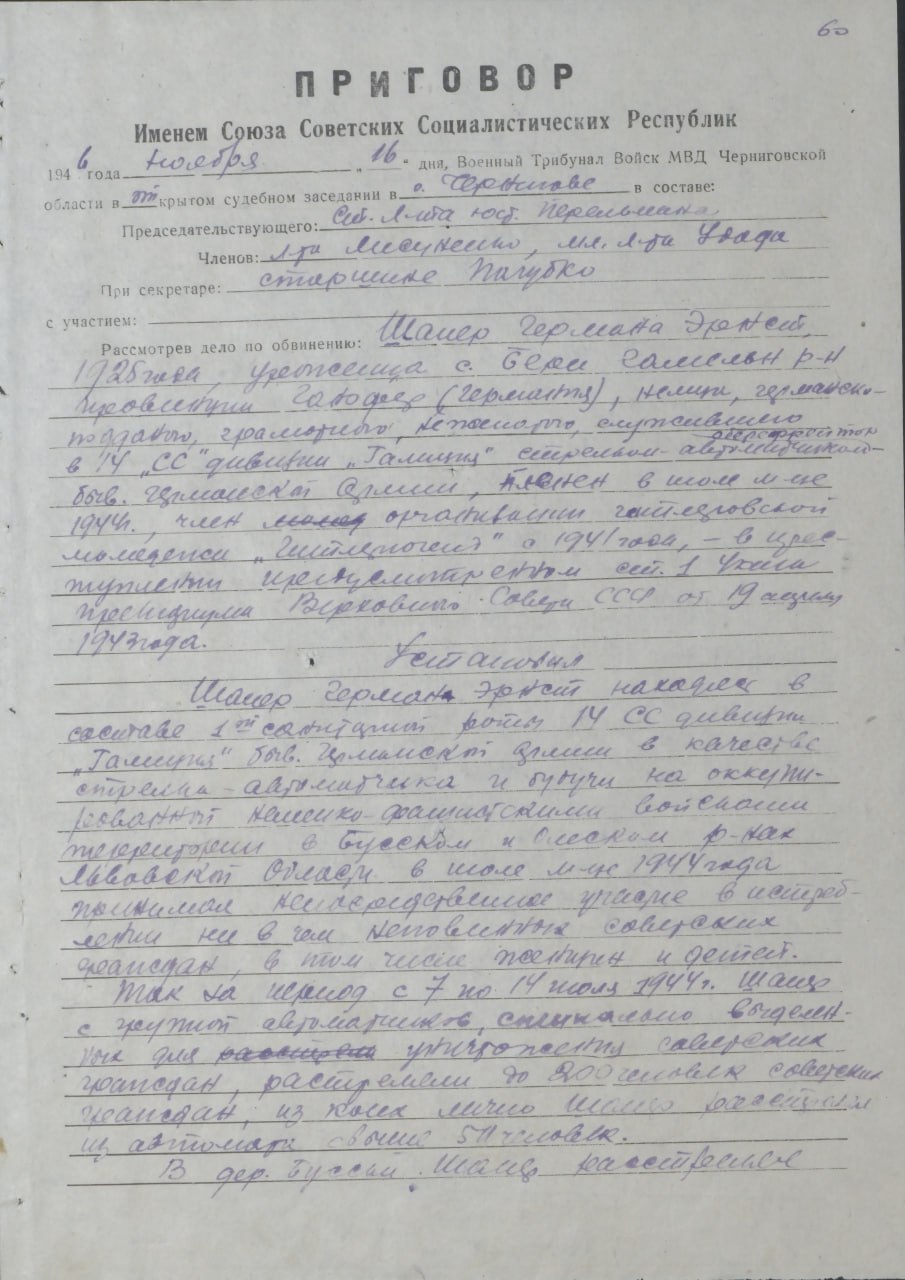 60
ПРИГОВОР
Именем Союза Советских Социалистических Республик
1946 года ноября „16" дня, Военный Трибунал Войск МВД Черниговской
области в открытом судебном заседании в г. Чернигове в составе:
Председательствующего: Ст. Л-та юст. Перельмана
Членов: л-та Лисуненко, мл. л-та
При секретаре: старшине
с участием:
Рассмотрев дело по обвинению: Шапер Германа Эрнст,
1925 года, уроженца с. р-н
провинции Гановер (Германия), немца, германско-
подданого, грамотного, неженатого, служившего
в 14 „СС" дивизии „Галиция" стрелком-автоматчиком
обергефрейтор
быв. Германской армии, пленен в июле м-це
1944г., член молод организации гитлеровской
молодежи „Гитлерюгенд" с 1941 года, – в прес-
туплении предусмотренном ст. 1 Указа
президиума Верховного Совета СССР от 19 апреля
1943 года.
Установил
Шапер Герман Эрнст находясь в
составе 1ой санитарной роты 14 СС дивизии
„Галиция" быв. Германской армии в качестве
стрелка-автоматчика и будучи на оккупи-
рованной немецко-фашистскими войсками
территории в Бусском и Олеском р-нах
Львовской Области в июле м-це 1944 года
принимал непосредственное участие в истреб-
лении ни в чем неповинных советских
граждан, в том числе женщин и детей.
Так за период с 7 по 14 июля 1944г. Шапер
с группой автоматчиков, специально выделен-
ных для расстрела уничтожения советских
граждан, растреляли до 200 человек советских
граждан, из коих лично Шапер расстрелял
из автомата свыше 50 человек.
В дер. Шапер расстрелял